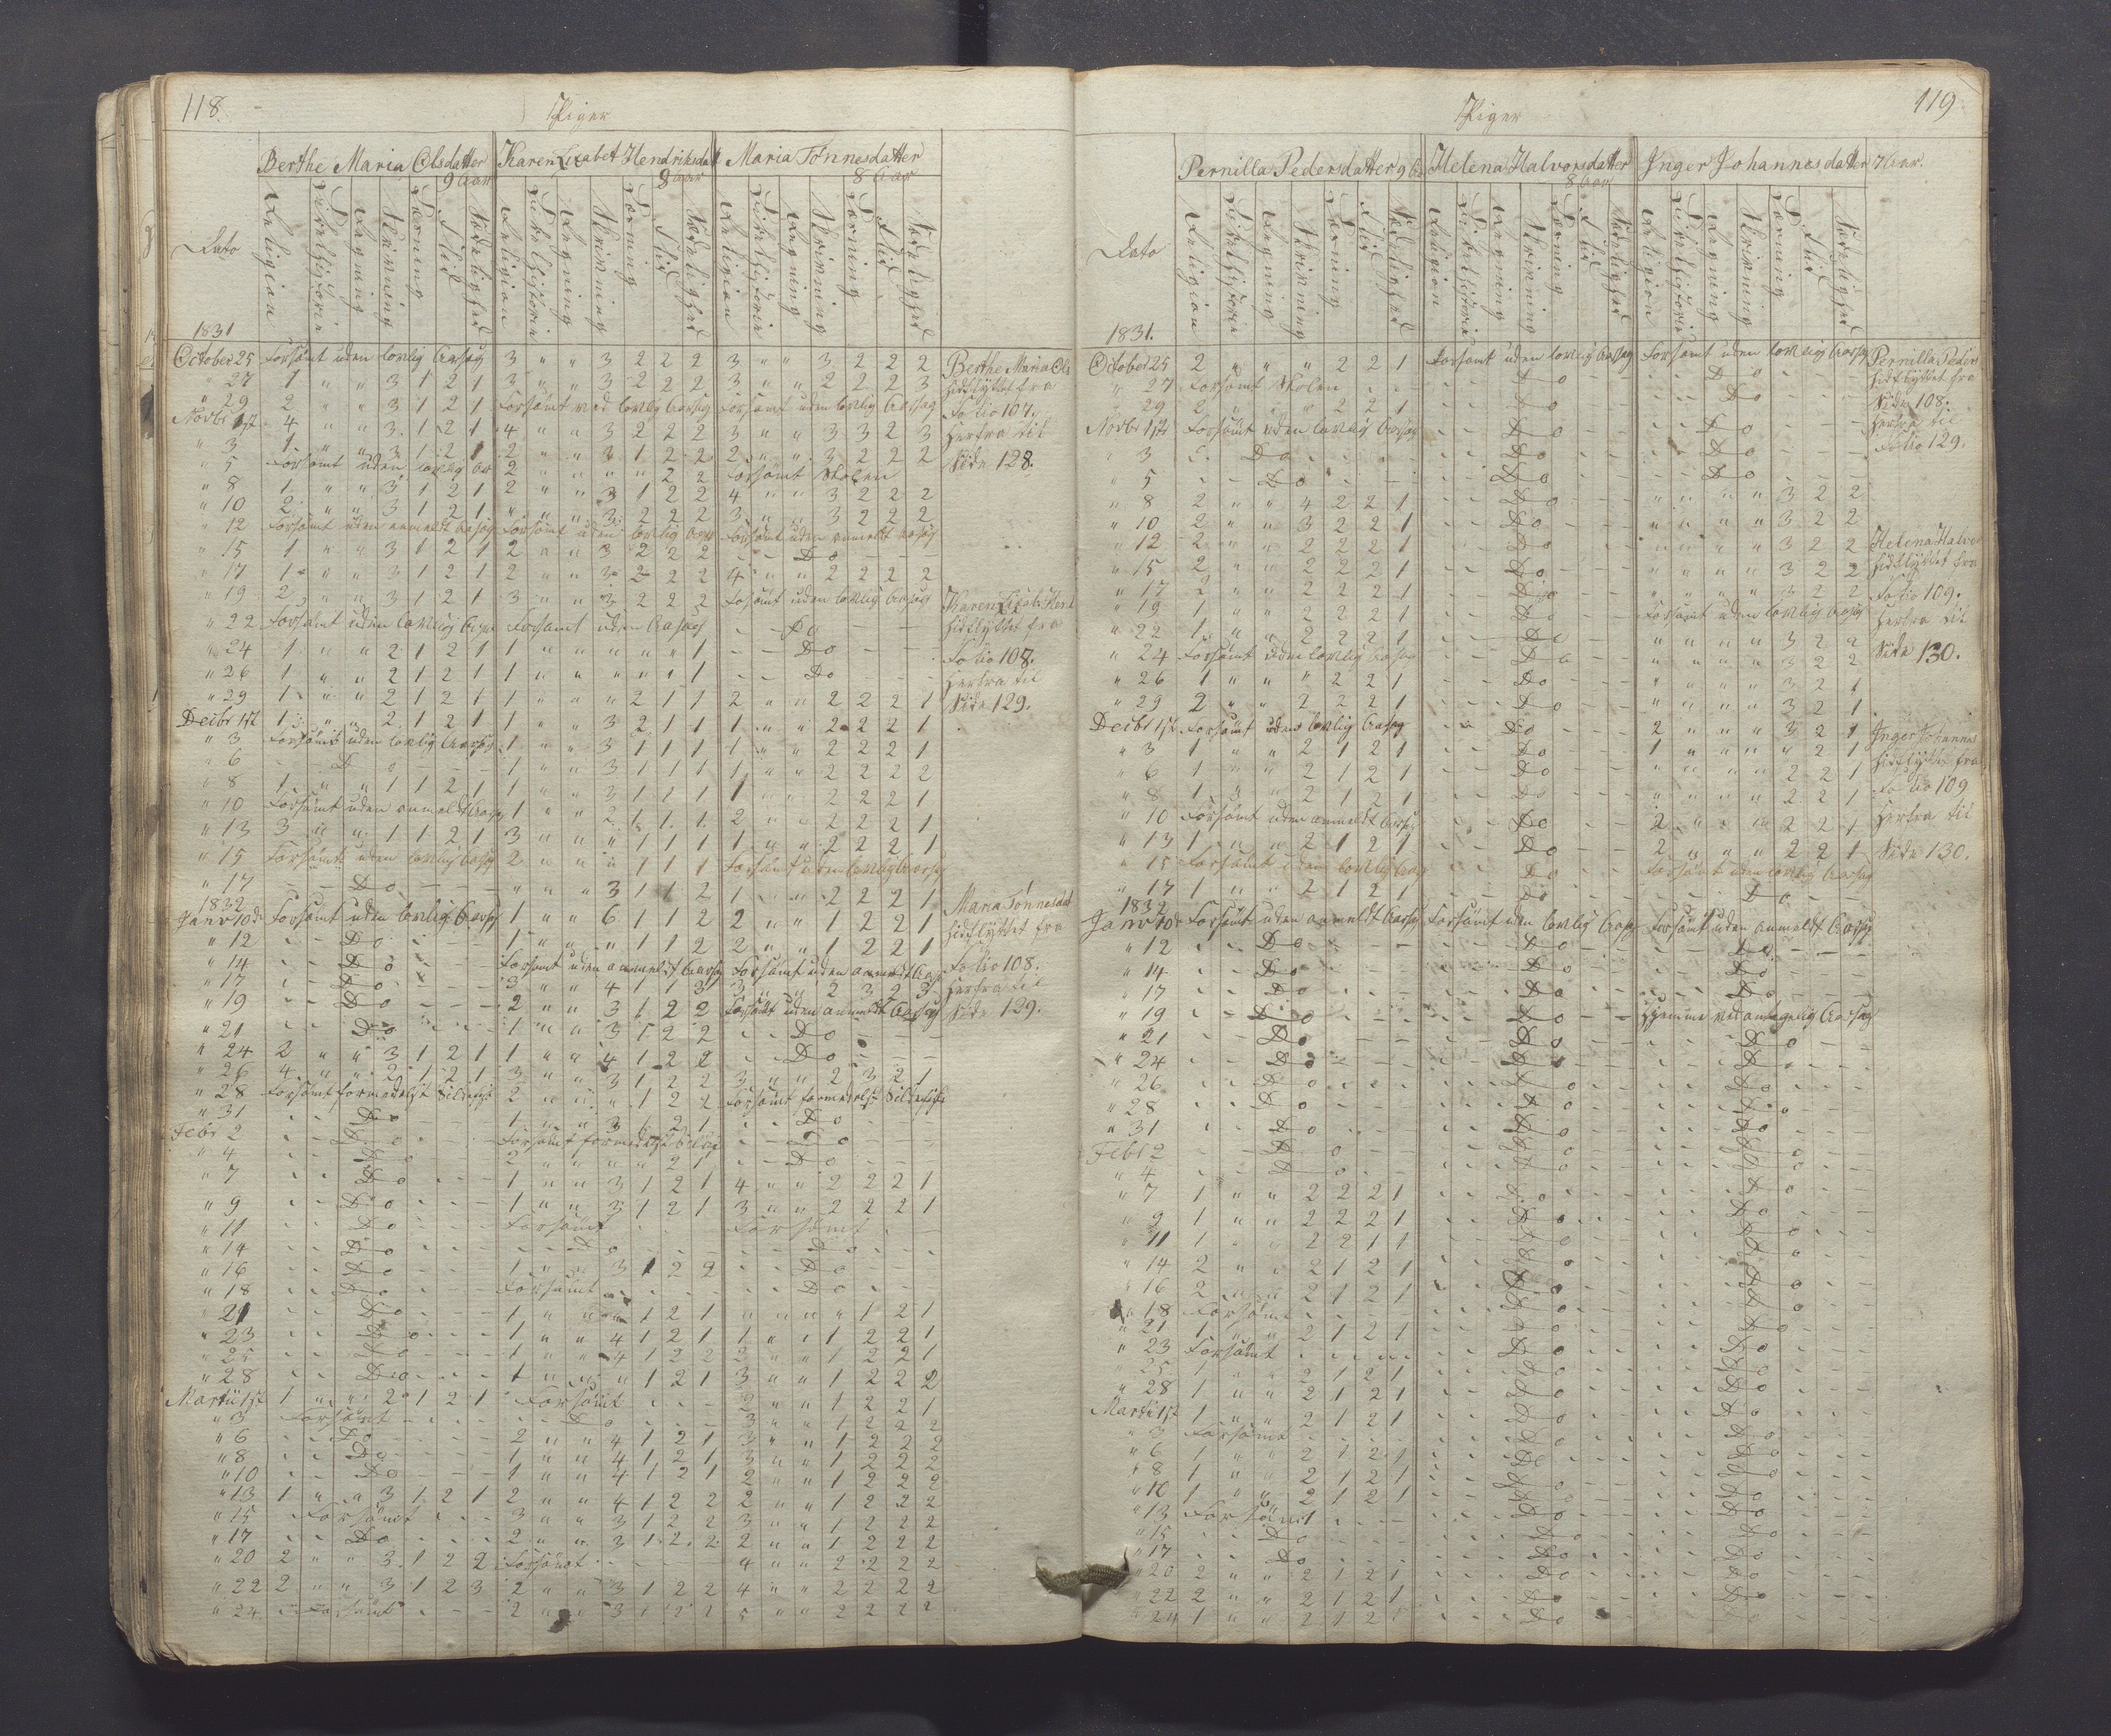 118.
Piger
Berthe Maria Olsdatter 9 Aar
Karen Lizabet Hendriksdatt 8 Aar
Maria Tønnesdatter 8 Aar
Dato
Religion
Bibelhistorie
Regning
Skrivning
Læsning
Flid
Sædelighed
Religion
Bibelhistorie
Regning
Skrivning
Læsning
Flid
Sædelighed
Religion
Bibelhistorie
Regning
Skrivning
Læsning
Flid
Sædelighed
1831
October 25 Forsømt uden lovlig Aarsag 3 " " 3 2 2 2 3 " " 3 2 2 2
" 27 1 " " 3 1 2 1 3 " " 3 2 2 2 3 " " 2 2 2 3
" 29 2 " " 3 1 2 1 Forsømt ved lovlig Aarsag Forsømt uden lovlig Aarsag
Novbr 1st 4 " " 3 1 2 1 4 " " 3 2 2 2 3 " " 3 3 2 3
" 3 1 " " 3 1 2 1 2 " " 3 1 2 2 2 " " 3 2 2 2
" 5 Forsømt uden lovlig Aar 2 " " " " 2 2 Forsømt Skolen
" 8 1 " " 3 1 2 1 2 " " 3 1 2 2 4 " " 3 2 2 2
" 10 2 " " 3 1 2 1 " " " 3 2 2 2 3 " " 3 2 2 2
" 12 Forsømt uden anmeldt Aarsag Forsømt uden lovlig Aars Forsømt uden anmeldt Aarsag
" 15 1 " " 3 1 2 1 2 " " 3 2 2 2 Do
" 17 1 " " 3 1 2 1 2 " " 3 2 2 2 4 " " 2 2 2 2
" 19 2 " " 3 1 2 1 3 " " 3 2 2 2 Forsømt uden lovlig Aarsag
" 22 Forsømt uden lovlig Aarsag Forsømt uden Aarsag Do
" 24 1 " " 2 1 2 1 1 " " " " " 1 Do
" 26 1 " " 2 1 2 1 1 " " " " " 1 Do
" 29 1 " " 2 1 2 1 1 " " " 2 1 1 2 " " 2 2 2 1
Decbr 1st 1 " " 2 1 2 1 1 " " 3 2 1 1 1 " " 2 2 2 1
" 3 Forsømt uden lovlig Aarsag 1 " " 3 1 1 1 1 " " 2 2 2 1
" 6 Do 1 " " 3 1 1 1 1 " " 2 2 2 2
" 8 1 " " 1 1 2 1 1 " " 3 1 1 1 1 " " 2 2 2 1
" 10 Forsømt uden anmeldt Aarsag 1 " " 2 1 1 1 2 " " 2 2 2 1
" 13 3 " " 1 1 2 1 3 " " " 1 1 1 1 " " 2 2 2 1
" 15 Forsømt uden lovlig Aarsag 2 " " " 1 1 1 Forsømt uden lovlig Aarsag
" 17 Do " " " 3 1 1 2 1 " " 2 2 2 1
1832
Janv 10de Forsømt uden lovlig Aarsag 1 " " 6 1 1 2 2 " " 1 2 2 1
" 12 Do 1 " " " 1 1 2 2 " " 1 2 2 1
" 14 Do Forsømt uden anmeldt Aarsag Forsømt uden anmeldt Aarsag
" 17 Do 3 " " 4 1 1 3 3 " " 2 3 2 3
" 19 Do 2 " " 3 1 2 2 Forsømt uden anmeldt Aarsag
" 21 Do 1 " " 3 1 2 2 Do
" 24 2 " " 3 1 2 1 1 " " 4 1 2 2 Do
" 26 4 " " 2 1 2 1 3 " " 3 1 2 2 3 " " 2 3 2 1
" 28 Forsømt formedelst Sildefiske 2 " " " 1 2 2 Forsømt formedelst Sildefiske
" 31 Do 1 " " 3 1 2 1 Do
Febr 2 Do Forsømt formedelst Do
" 4 Do 2 " " " " 2 1 Do
" 7 Do 1 " " 3 1 2 1 4 " " 2 2 2 1
" 9 Do 1 " " 3 1 2 1 3 " " 2 2 2 1
" 11 Do Forsømt Forsømt
" 14 Do Do Do
" 16 Do 1 " " 3 1 2 2 Do
" 18 Do Forsømt Do
" 21 Do 1 " " " 1 2 1 " " " " 1 2 1
" 23 Do 1 " " 4 1 2 1 1 " " 1 2 2 1
" 25 Do 1 " " 4 1 2 2 2 " " 1 2 2 1
" 28 Do 1 " " " 1 2 1 3 " " 1 2 2 2
Martii 1st 1 " " 2 1 2 1 Forsømt 2 " " 1 2 2 1
" 3 Forsømt Do 3 " " 1 2 2 2
" 6 Do 2 " " 4 1 2 1 3 " " 1 2 2 2
" 8 Do 1 " " 4 1 2 1 3 " " 1 2 2 2
" 10 Do 1 " " 4 1 2 1 2 " " 1 2 2 2
" 13 1 " " 3 1 2 1 2 " " 4 1 2 2 2 " " 1 2 2 2
" 15 Forsømt 3 " " 3 1 2 2 3 " " 1 2 2 2
" 17 Do 2 " " 3 1 2 2 2 " " 1 2 2 2
" 20 2 " " 3 1 2 2 Forsømt 4 " " 2 2 2 2
" 22 2 " " 3 1 2 3 2 " " 3 1 2 2 4 " " 2 2 2 2
" 24 Forsømt 2 " " 3 1 2 2 5 " " 2 2 2 2
Berthe Maria Ols
hidflyttet fra
Folio 107.
Herfra til
Side 128.
Karen Lizabt Hend
hidflyttet fra
Folio 108.
Herfra til
Side 129.
Maria Tønnesdat
hidflyttet fra
Folio 108.
Herfra til
Side 129.
119
Piger
Pernilla Pedersdatter 9 Aa
Helena Halvorsdatter 8 Aar
Inger Johannesdatter 7 Aar.
Dato
Religion
Bibelhistorie
Regning
Skrivning
Læsning
Flid
Sædelighed
Religion
Bibelhistorie
Regning
Skrivning
Læsning
Flid
Sædelighed
Religion
Bibelhistorie
Regning
Skrivning
Læsning
Flid
Sædelighed
1831.
October 25 2 " " " 2 2 1 Forsømt uden lovlig Aarsag Forsømt uden lovlig Aarsag
" 27 Forsømt Skolen Do Do
" 29 2 " " " 2 2 1 Do Do
Novbr 1st Forsømt uden lovlig Aarsag Do Do
" 3 Do Do Do
" 5 Do Do Do
" 8 2 " " 4 2 2 1 Do " " " " 3 2 2
" 10 2 " " 3 2 2 1 Do " " " " 3 2 2
" 12 2 " " 2 2 2 1 Do " " " " 3 2 2
" 15 2 " " 2 2 2 1 Do " " " " 3 2 2
" 17 2 " " 2 2 2 1 Do " " " " 3 2 2
" 19 1 " " 2 2 2 1 Do Forsømt uden lovlig Aarsag
" 22 1 " " 2 2 2 1 Do " " " " 3 2 2
" 24 Forsømt uden lovlig Aarsag Do " " " " 3 2 2
" 26 1 " " " 2 2 1 Do " " " " 3 2 1
" 29 2 " " 2 2 2 1 Do " " " " 3 2 1
Decbr 1st Forsømt uden lovlig Aarsag Do 2 " " " 3 2 1
" 3 1 " " 2 1 2 1 Do 1 " " " " 2 1
" 6 1 " " 2 1 2 1 Do " " " " 2 2 1
" 8 1 " " 2 1 2 1 Do " " " " 2 2 1
" 10 Forsømt uden anmeldt Aarsag Do 2 " " " 2 2 1
" 13 1 " " 2 1 2 1 Do 2 " " " 2 2 1
" 15 Forsømt uden lovlig Aarsag Do Forsømt uden lovlig Aarsag
" 17 1 " " 2 1 2 1 Do Do
1832
Janv 10de Forsømt uden anmeldt Aarsag Forsømt uden lovlig Aarsag Forsømt uden anmeldt Aarsag
" 12 Do Do Do
" 14 Do Do Do
" 17 Do Do Do
" 19 Do Do Hjemme ved antagelig Aarsag
" 21 Do Do Do
" 24 Do Do Do
" 26 Do Do Do
" 28 Do Do Do
" 31 Do Do Do
Febr 2 Do Do Do
" 4 Do Do Do
" 7 1 " " 2 2 2 1 Do Do
" 9 1 " " 2 2 2 1 Do Do
" 11 1 " " 2 2 1 1 Do Do
" 14 2 " " 2 1 2 1 Do Do
" 16 2 " " 2 1 2 1 Do Do
" 18 Forsømt Do Do
" 21 1 " " 2 1 2 1 Do Do
" 23 Forsømt Do Do
" 25 1 " " 2 1 2 1 Do Do
" 28 1 " " 2 1 2 1 Do Do
Martii 1st 1 " " 2 1 2 1 Do Do
" 3 Forsømt Do Do
" 6 1 " " 2 1 2 1 Do Do
" 8 1 " " 2 1 2 1 Do Do
" 10 1 " " 2 1 2 1 Do Do
" 13 Forsømt Do Do
" 15 Do Do Do
" 17 Do Do Do
" 20 2 " " 2 1 2 1 Do Do
" 22 2 " " 2 1 2 1 Do Do
" 24 1 " " 2 1 2 1 Do Do
Pernilla Peders
hidflyttet fra
Side 108.
Herfra til
Folio 129.
Helena Halvo
hidflyttet fra
Folio 109.
Herfra til
Side 130.
Inger Johannes
hidflyttet fra
Folio 109
Herfra til
Side 130.